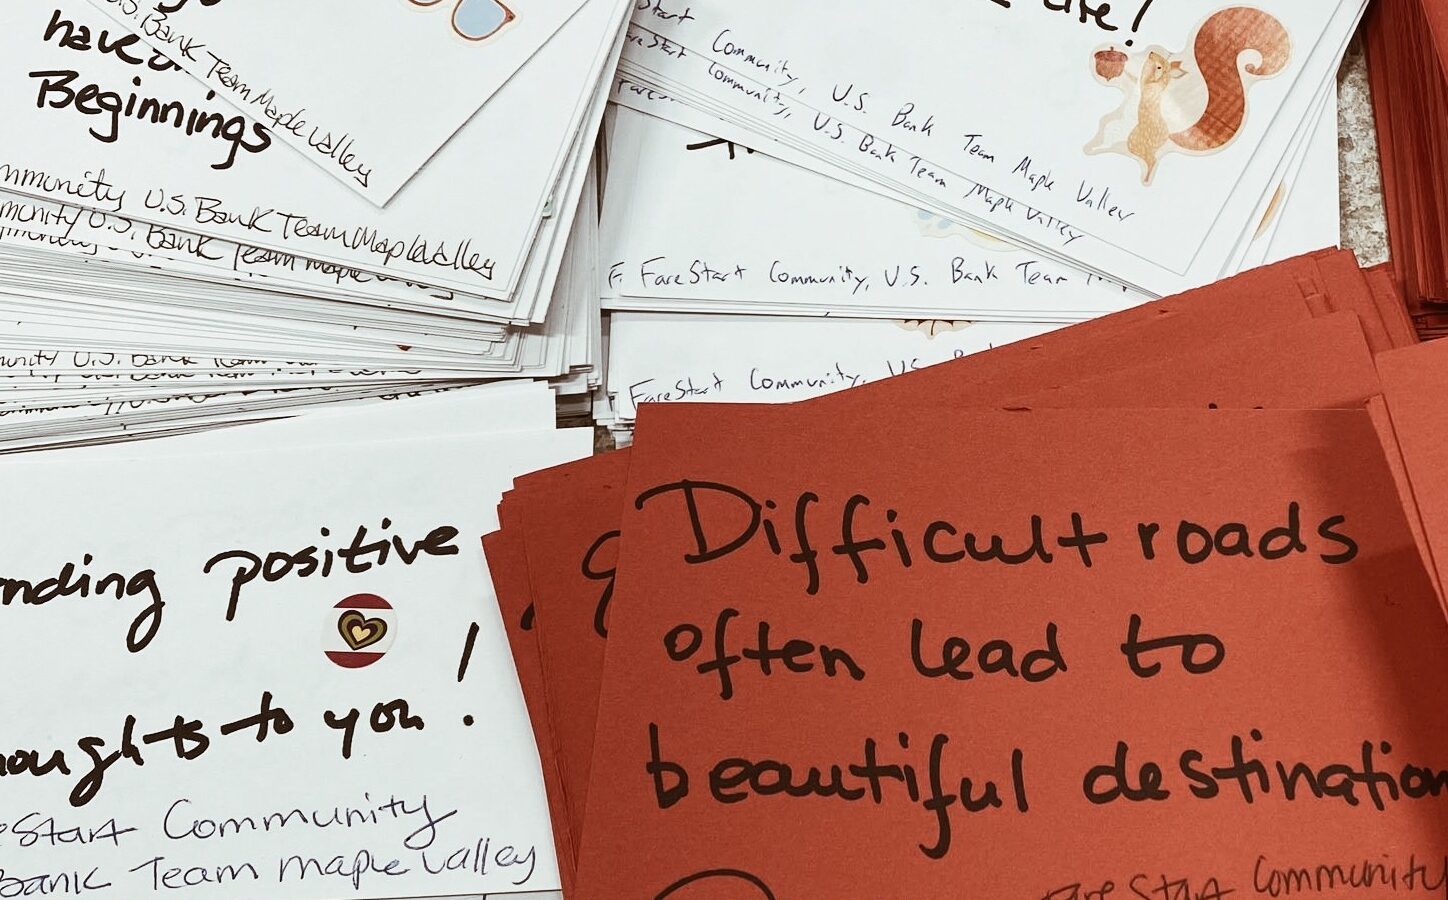 have
Beginnings
U.S. Bank Team Maple Valley
mmunity U.S. Bank Team Maple Valley
munity U.S. Bank Team Maple
U.S. Bank Team
Start Community, U.S. Bank Team Maple Valley
reStart Community, U.S. Bank Team Maple Valley
FareStart Community, U.S. Bank Team
FareStart Community, US
nding positive
houghts to you!
eStart Community
Bank Team Maple Valley
Difficult roads
often lead to
beautiful destination
areStart Community